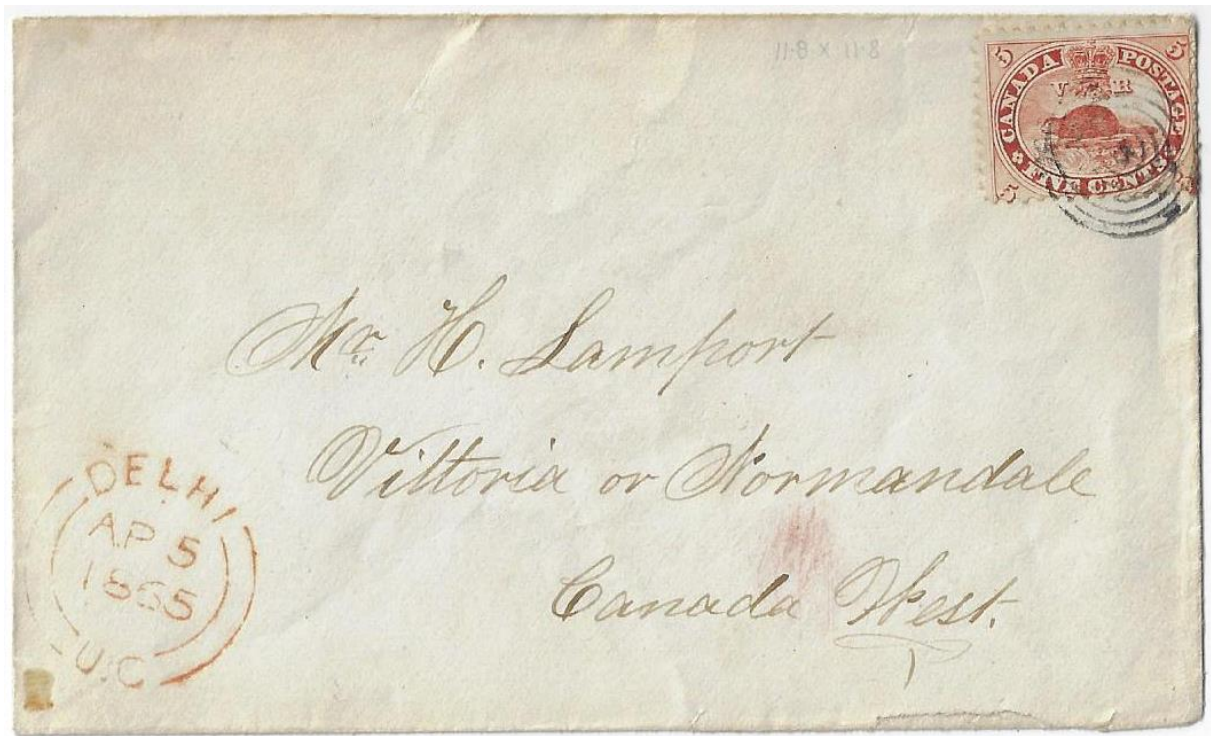 11·8 x 11·8
5 CANADA POSTAGE 5
V R
5 FIVE CENTS 5
Mr. H. Lamport
Vittoria or Normandale
Canada West.
DELHI
AP 5
1865
U.C